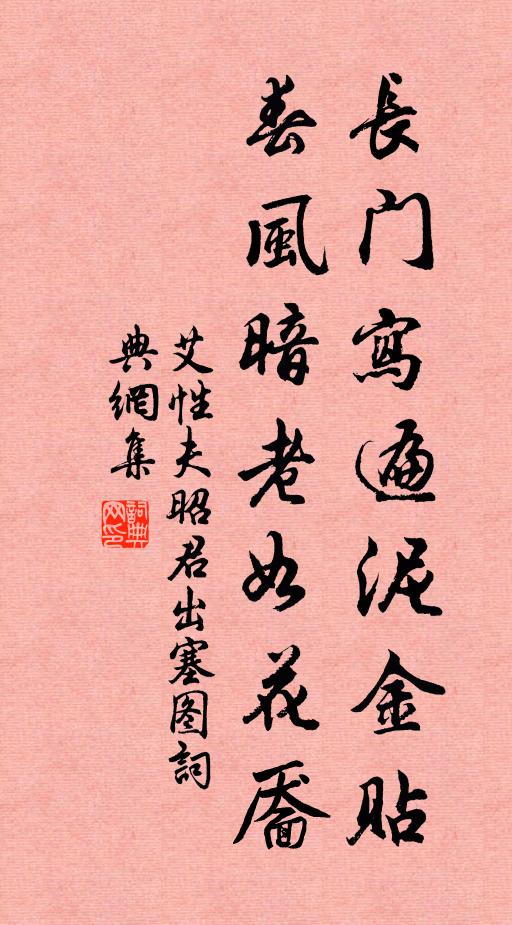 長門寫遍泥金貼
春風暗老如花靨
艾性夫昭君出塞图詞
典網集
詞典網印